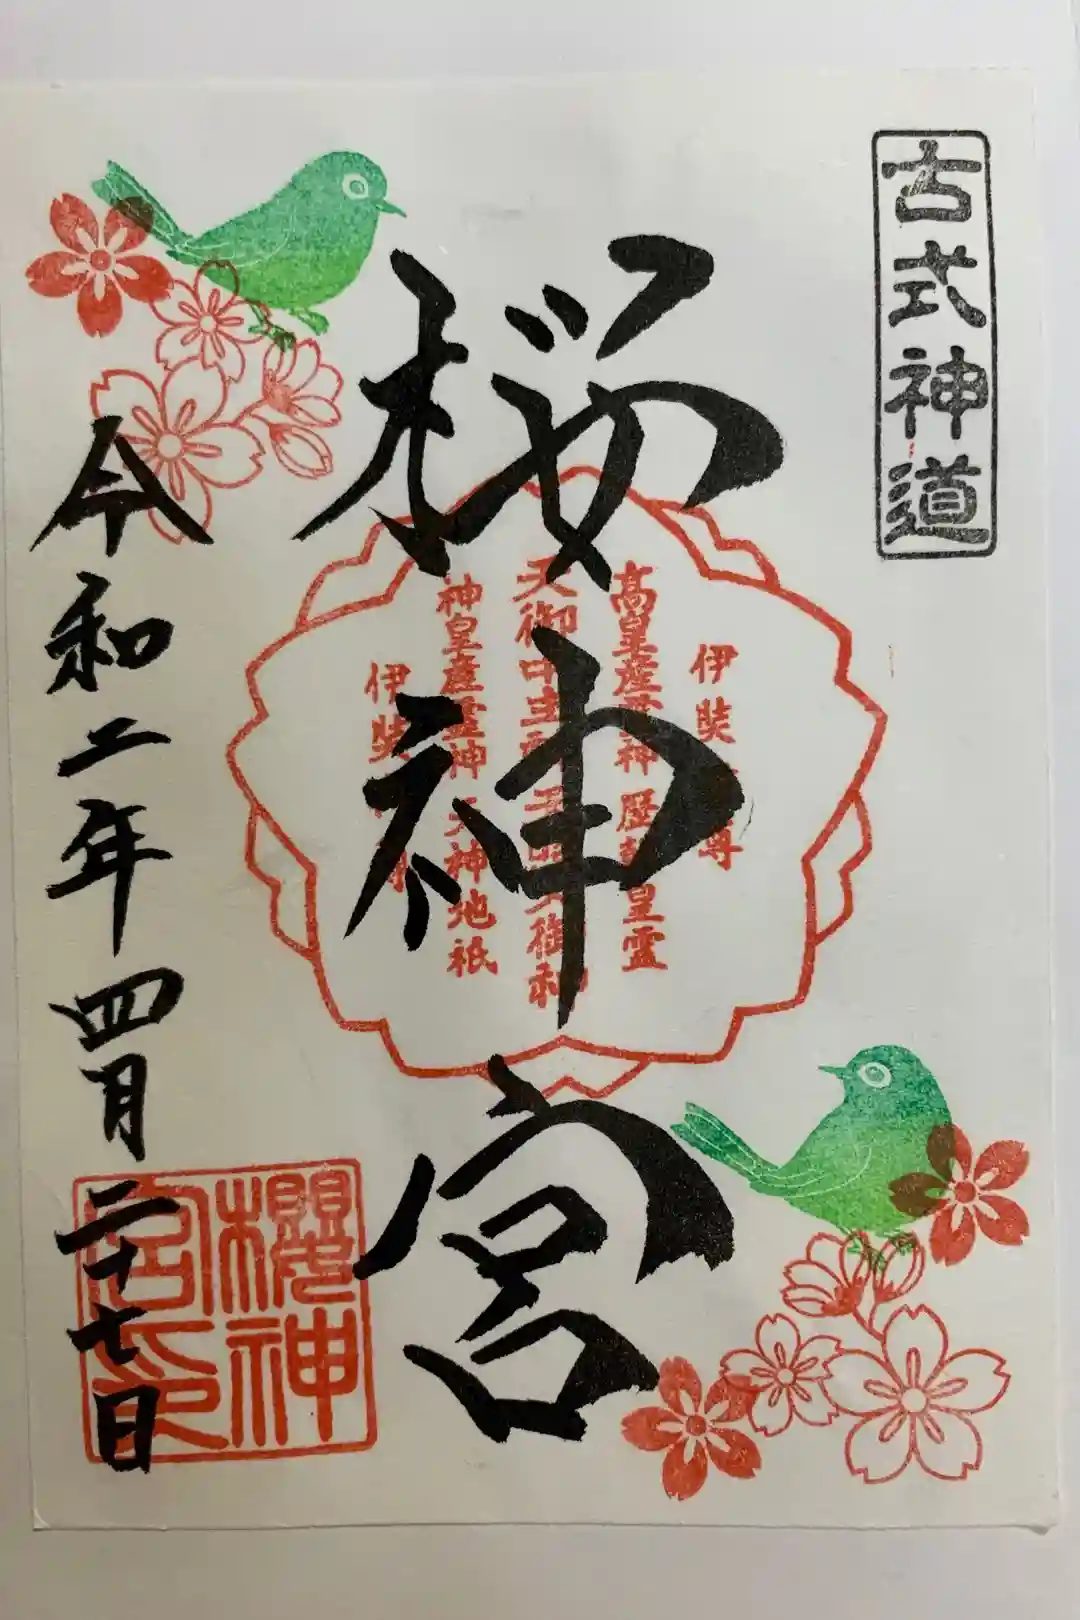 古式神道
桜神宮
伊奘 尊
高皇産霊神 歴 皇霊
天御中主
神皇産霊神 天神地祇
伊奘
令和二年四月二十七日
櫻神
宮印